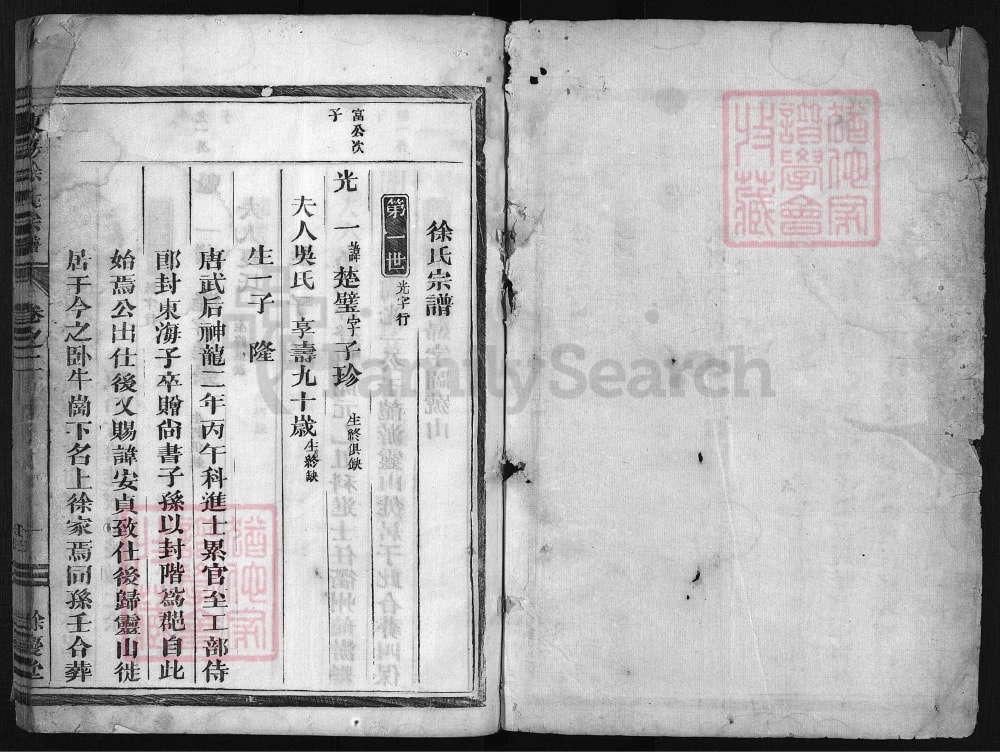 徐氏宗譜
第一世 光字行
富公次子
光一 諱楚璧字子珍 生終俱缺
夫人吳氏 享壽九十歲 生終缺
生一子 隆
唐武后神龍二年丙午科進士累官至工部侍
郎封東海子卒贈尚書子孫以封階為郡自此
始焉公出仕後又賜諱安貞致仕後歸靈山徙
居于今之卧牛崗下名上徐家焉同孫壬合葬
徐氏宗譜
卷之二
餘慶堂
譜學會
收藏
FamilySearch